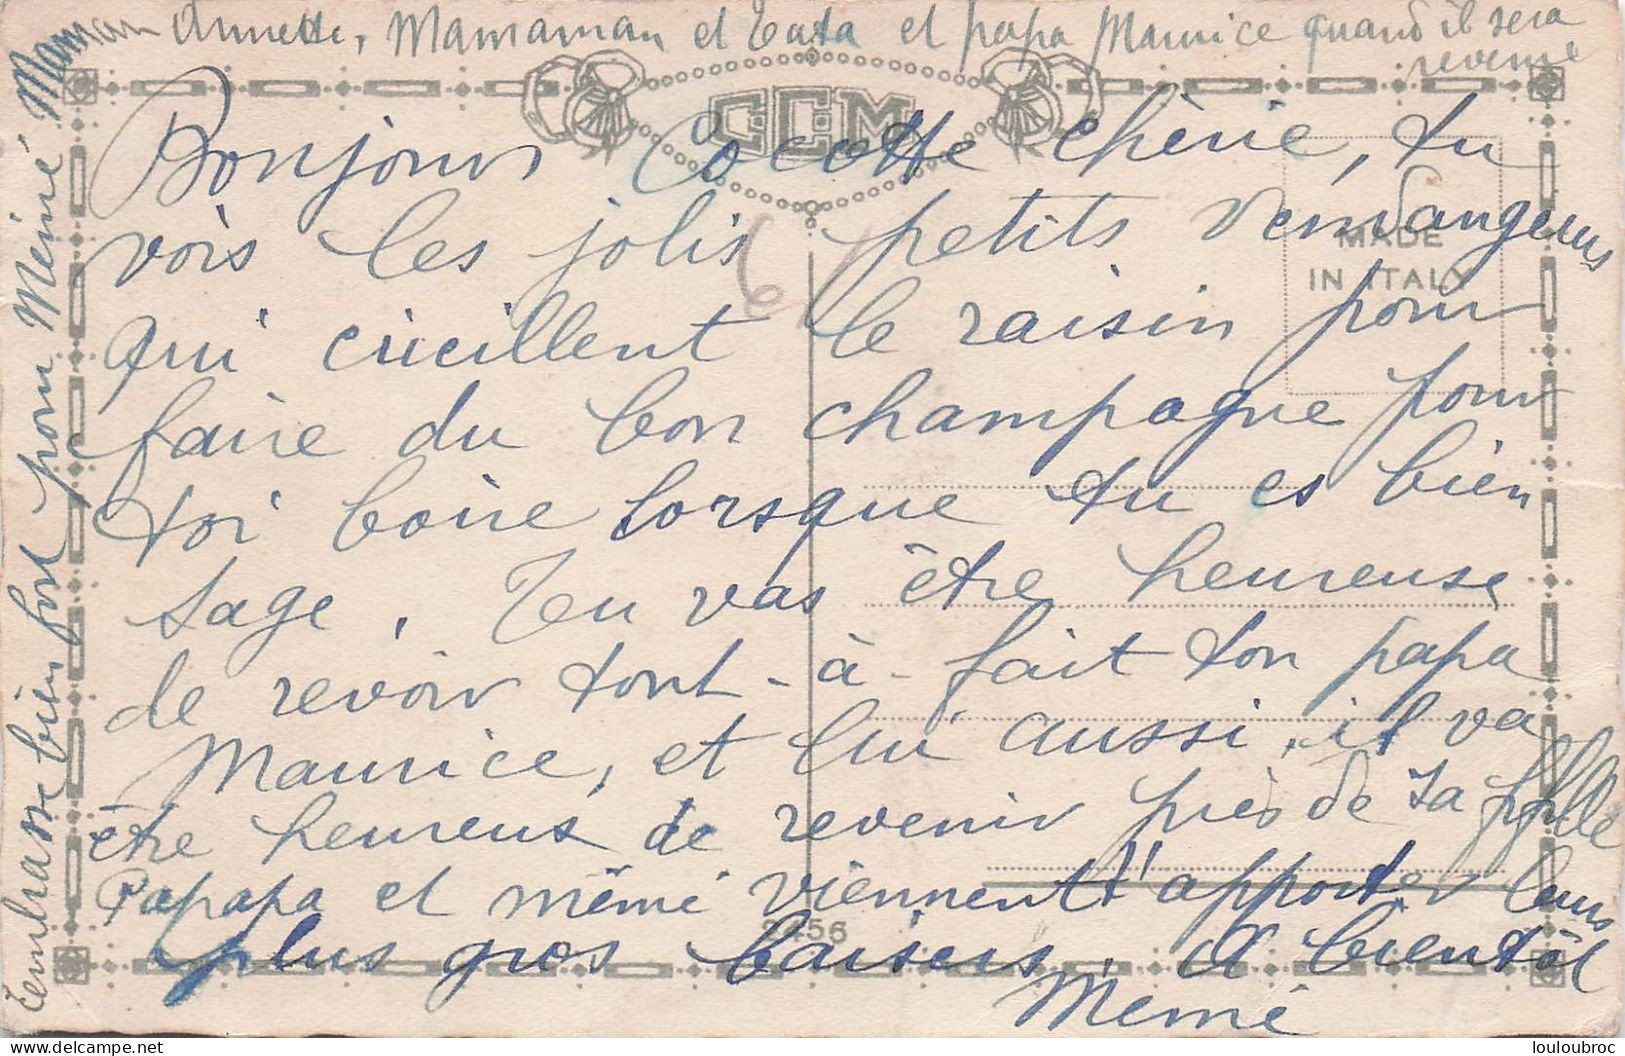 Bonjour Cocotte chèrie, tu
vois les jolis petits vendangeurs
qui cueillent le raisin pour
faire du bon champagne pour
toi boire lorsque tu es bien
sage. Tu vas être heureuse
de revoir tout-à-fait ton papa
Maurice, et lui aussi, il va
être heureux de revenir près de sa fille
Papapa et mémé viennent t'apporter leurs
plus gros baisers. A bientôt
Mémé
embrasse bien fort pour Mémé Maman
Annette, Mamaman et Tata et papa Maurice quand il sera
revenu
CCM
MADE
IN ITALY
2456
delcampe.net
louloubroc